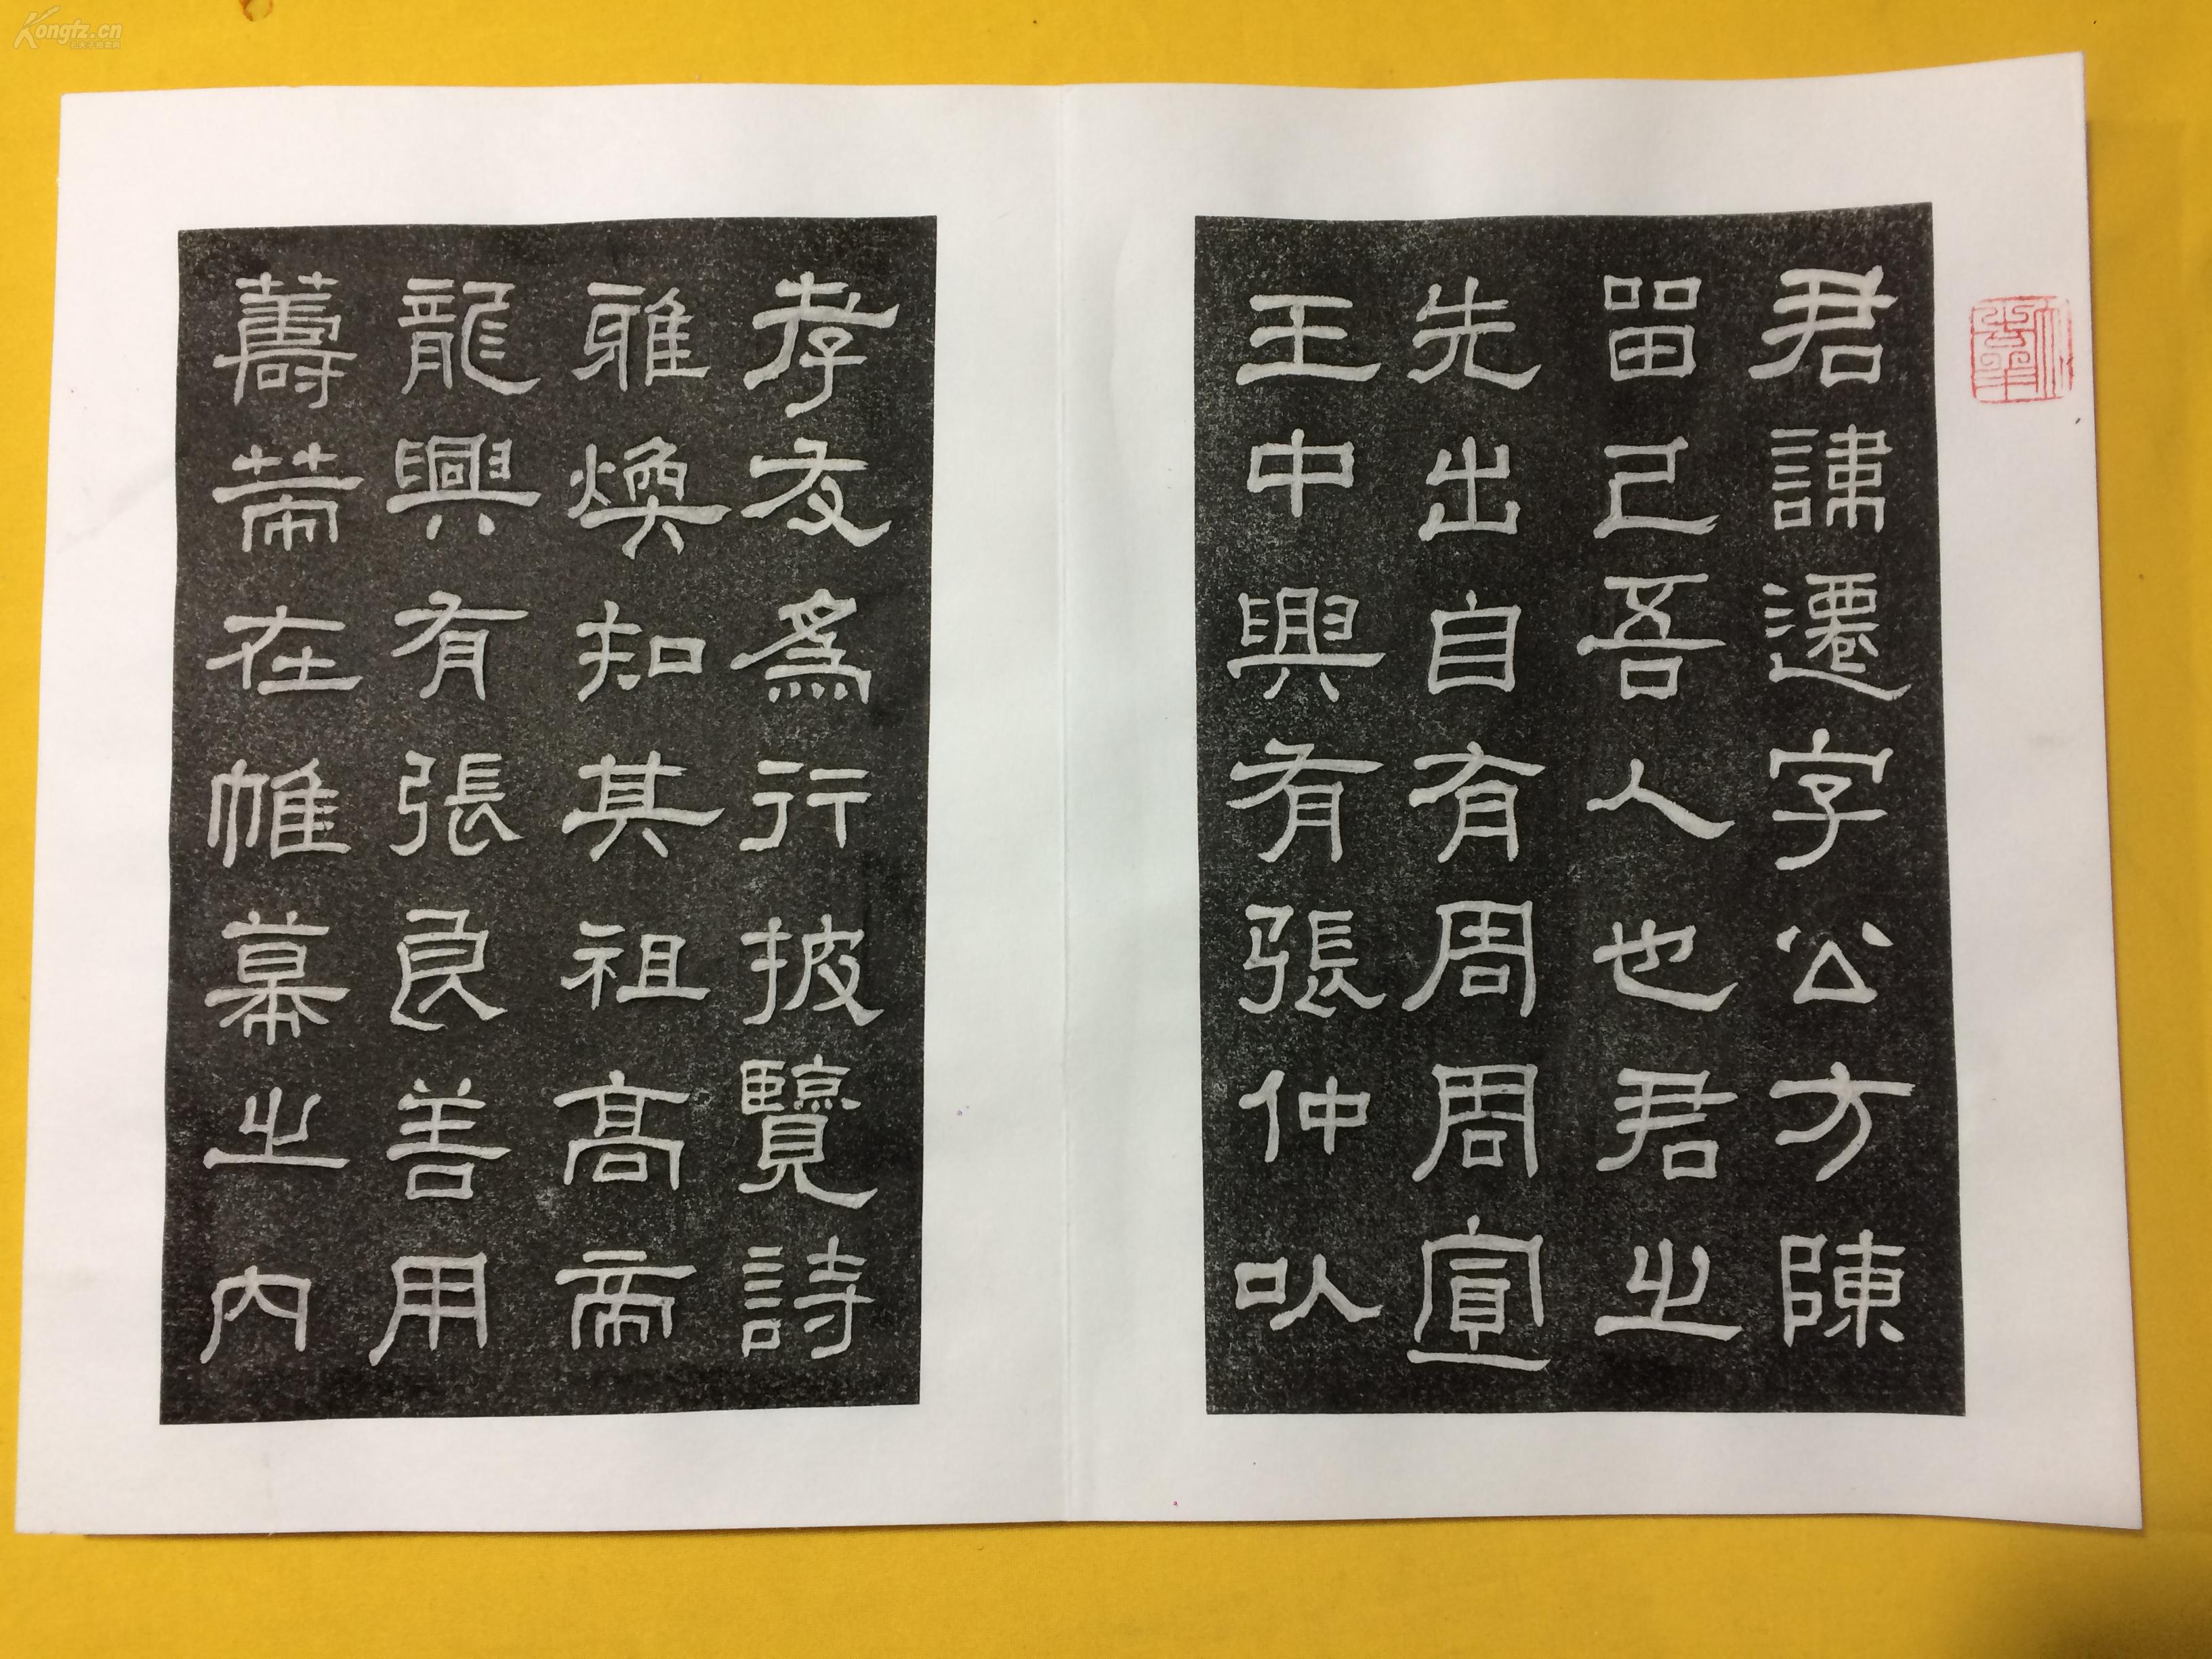 君諱遷字公方陳
留己吾人也君之
先出自有周周宣
王中興有張仲以
孝友為行披覽詩
雅煥知其祖高帝
龍興有張良善用
籌策在帷幕之內
Kongfz.cn